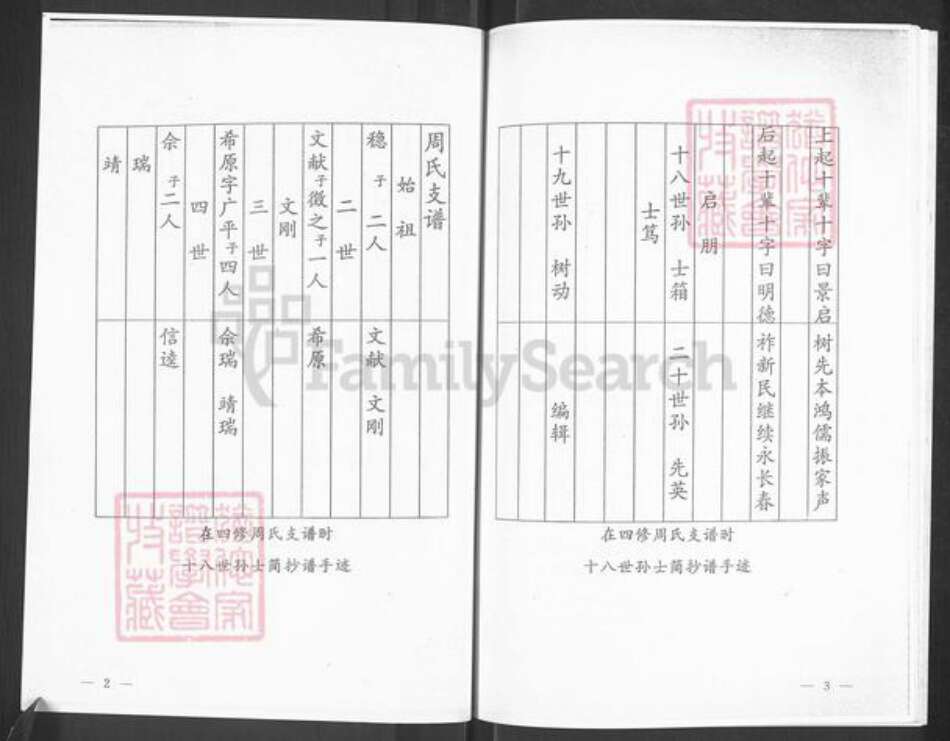 周氏支谱
始祖
稳 子 二人 文献 文刚
二世
文献子徵之子一人 希原
文刚
三世
希原字广平子四人 佘瑞 靖瑞
四世
佘 子二人 信逵
瑞
靖
在四修周氏支谱时
十八世孙士茼抄谱手迹
— 2 —
上起十辈十字曰景启树先本鸿儒振家声
后起十辈十字曰明德祚新民继续永长春
启朋
十八世孙 士箱 二十世孙 先英
士笃
十九世孙 树动 编辑
在四修周氏支谱时
十八世孙士茼抄谱手迹
— 3 —
FamilySearch